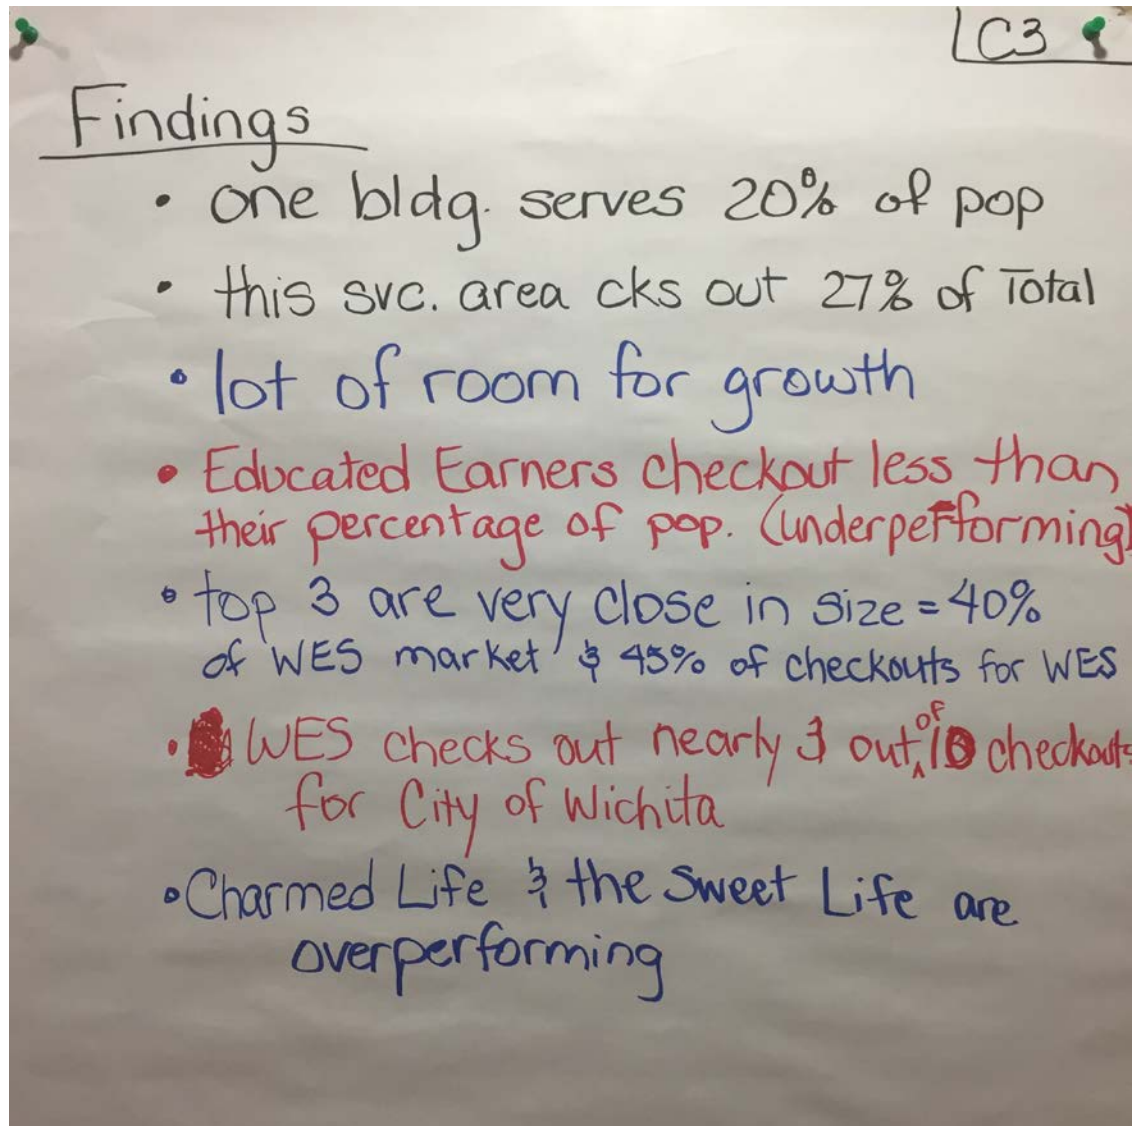 C3
Findings
• one bldg. serves 20% of pop
• this svc. area cks out 27% of Total
• lot of room for growth
• Educated Earners checkout less than
their percentage of pop. (underperforming)
• top 3 are very close in size = 40%
of WES market & 45% of checkouts for WES
• WES checks out nearly 3 out of 10 checkouts
for City of Wichita
• Charmed Life & the Sweet Life are
overperforming